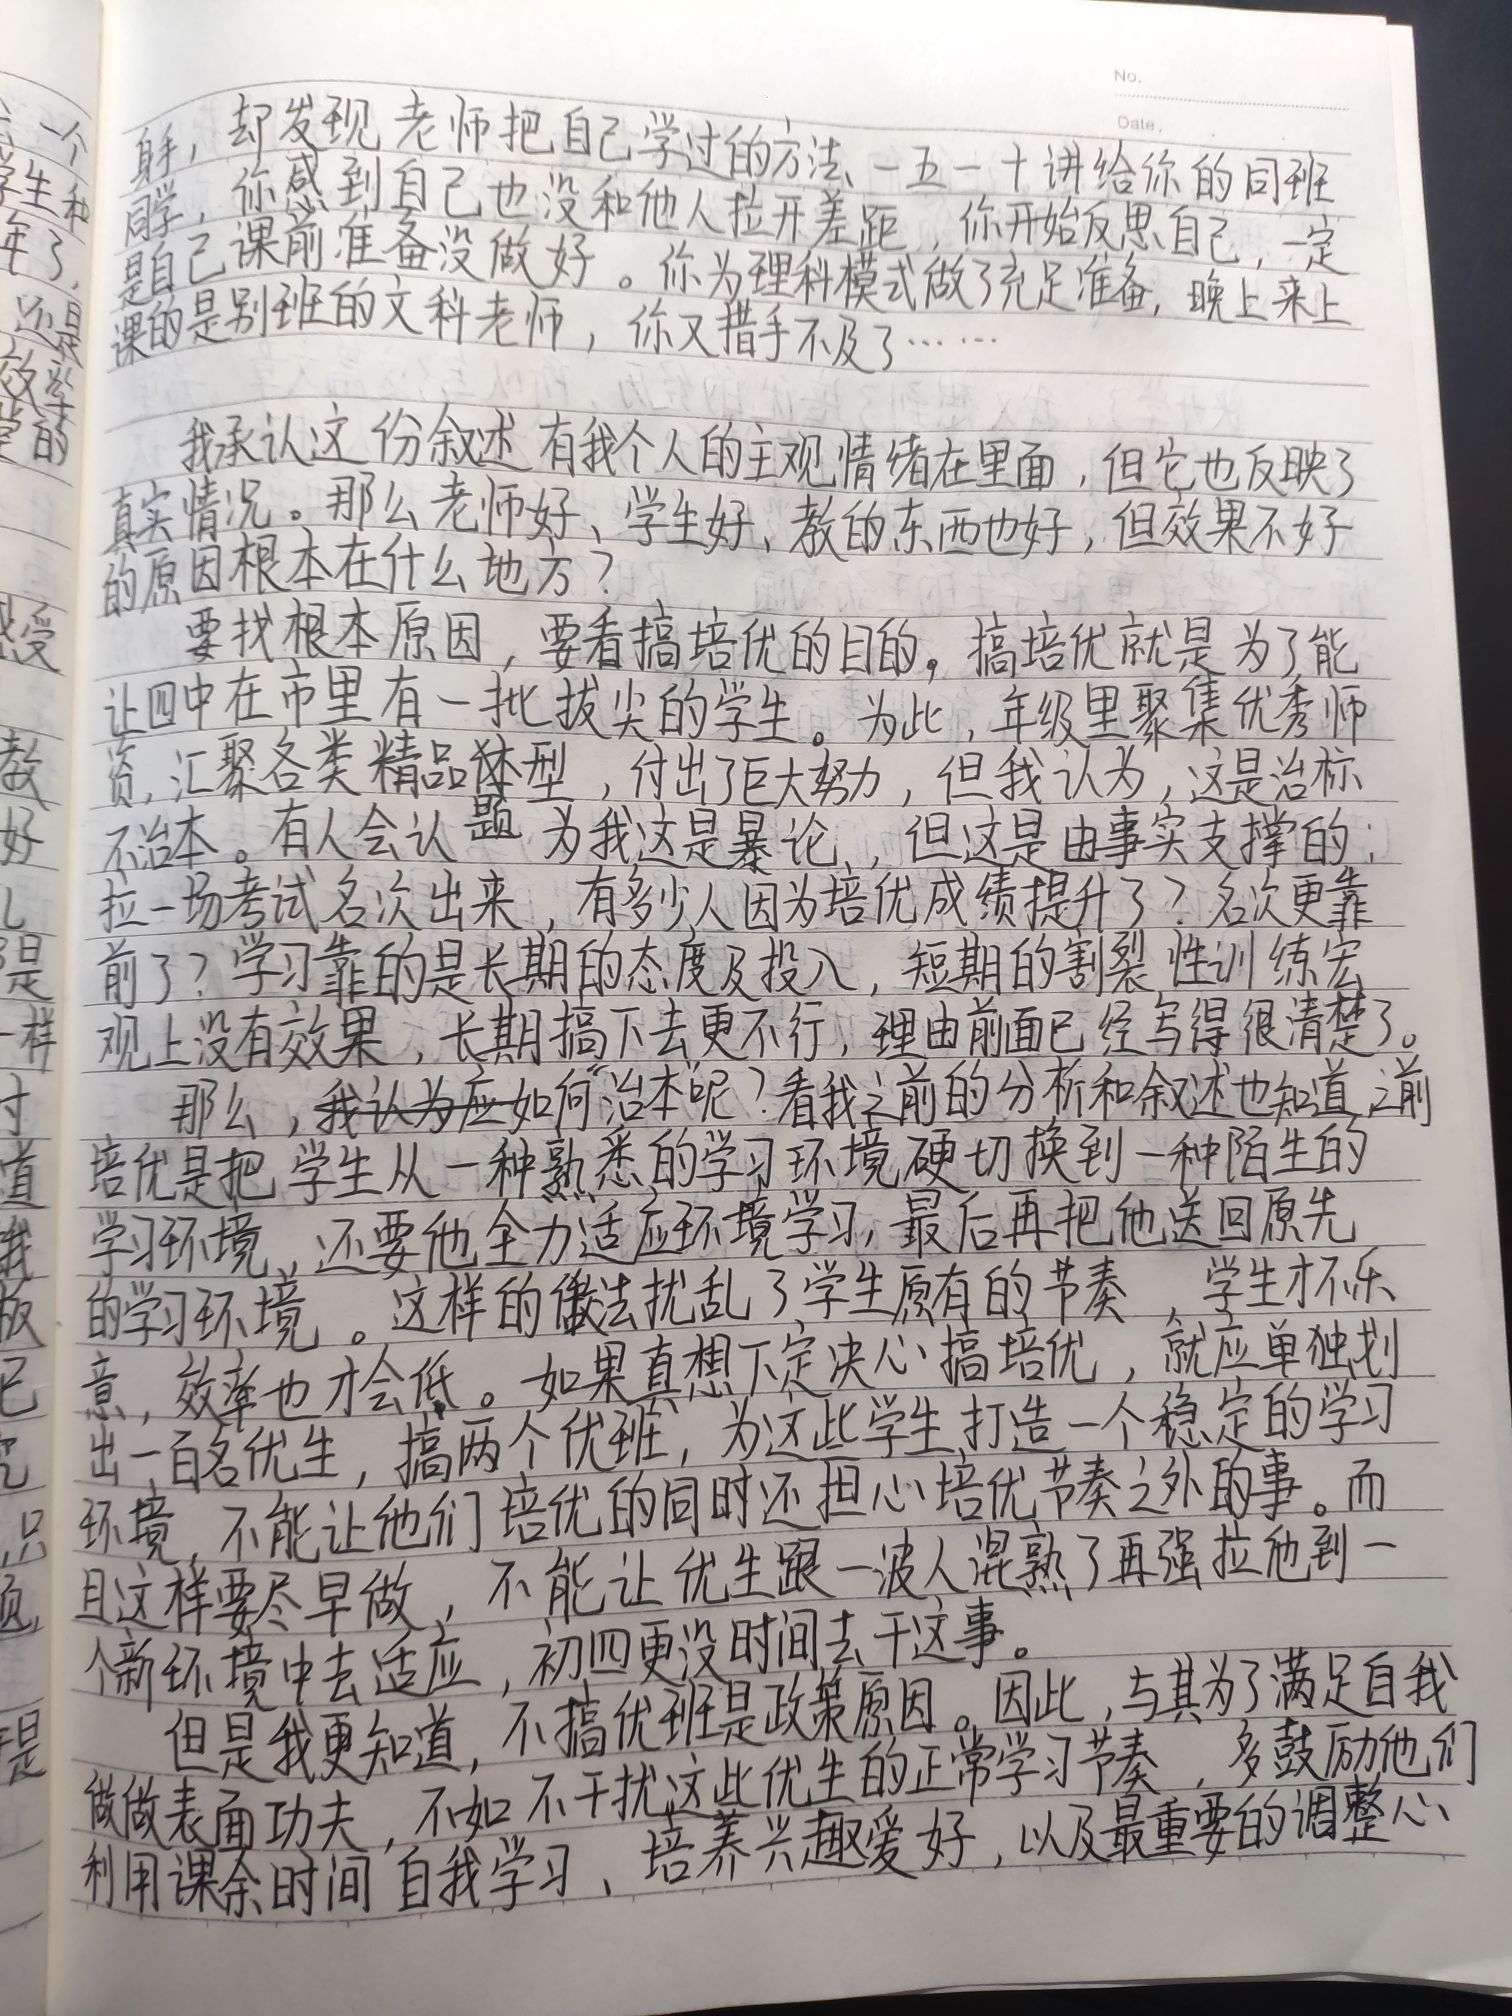 No.
Date.
身手，却发现老师把自己学过的方法、一五一十讲给你的同班
同学，你感到自己也没和他人拉开差距，你开始反思自己，一定
是自己课前准备没做好。你为理科模式做了充足准备，晚上来上
课的是别班的文科老师，你又措手不及了……
我承认这份叙述有我个人的主观情绪在里面，但它也反映了
真实情况。那么老师好、学生好、教的东西也好，但效果不好
的原因根本在什么地方？
要找根本原因，要看搞培优的目的。搞培优就是为了能
让四中在市里有一批拔尖的学生。为此，年级里聚集优秀师
资，汇聚各类精品题型，付出了巨大努力，但我认为，这是治标
不治本。有人会认为我这是暴论，但这是由事实支撑的：
拉一场考试名次出来，有多少人因为培优成绩提升了？名次更靠
前了？学习靠的是长期的态度及投入，短期的割裂性训练宏
观上没有效果，长期搞下去更不行，理由前面已经写得很清楚了。
那么，我认为应如何“治本”呢？看我之前的分析和叙述也知道，之前
培优是把学生从一种熟悉的学习环境硬切换到一种陌生的
学习环境，还要他全力适应环境学习，最后再把他送回原先
的学习环境。这样的做法扰乱了学生原有的节奏，学生才不乐
意，效率也才会低。如果真想下定决心搞培优，就应单独划
出一百名优生，搞两个优班，为这些学生打造一个稳定的学习
环境，不能让他们培优的同时还担心培优节奏之外的事。而
且这样要尽早做，不能让优生跟一波人混熟了再强拉他到一
个新环境中去适应，初四更没时间去干这事。
但是我更知道，不搞优班是政策原因。因此，与其为了满足自我
做做表面功夫，不如不干扰这些优生的正常学习节奏，多鼓励他们
利用课余时间自我学习、培养兴趣爱好，以及最重要的调整心